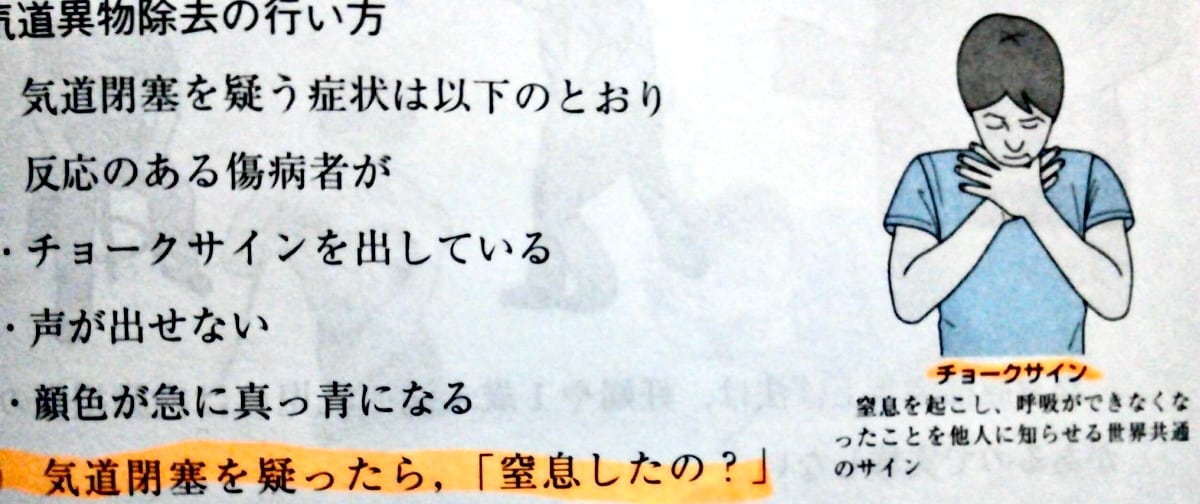 気道異物除去の行い方
気道閉塞を疑う症状は以下のとおり
反応のある傷病者が
・チョークサインを出している
・声が出せない
・顔色が急に真っ青になる
) 気道閉塞を疑ったら,「窒息したの?」
チョークサイン
窒息を起こし、呼吸ができなくな
ったことを他人に知らせる世界共通
のサイン